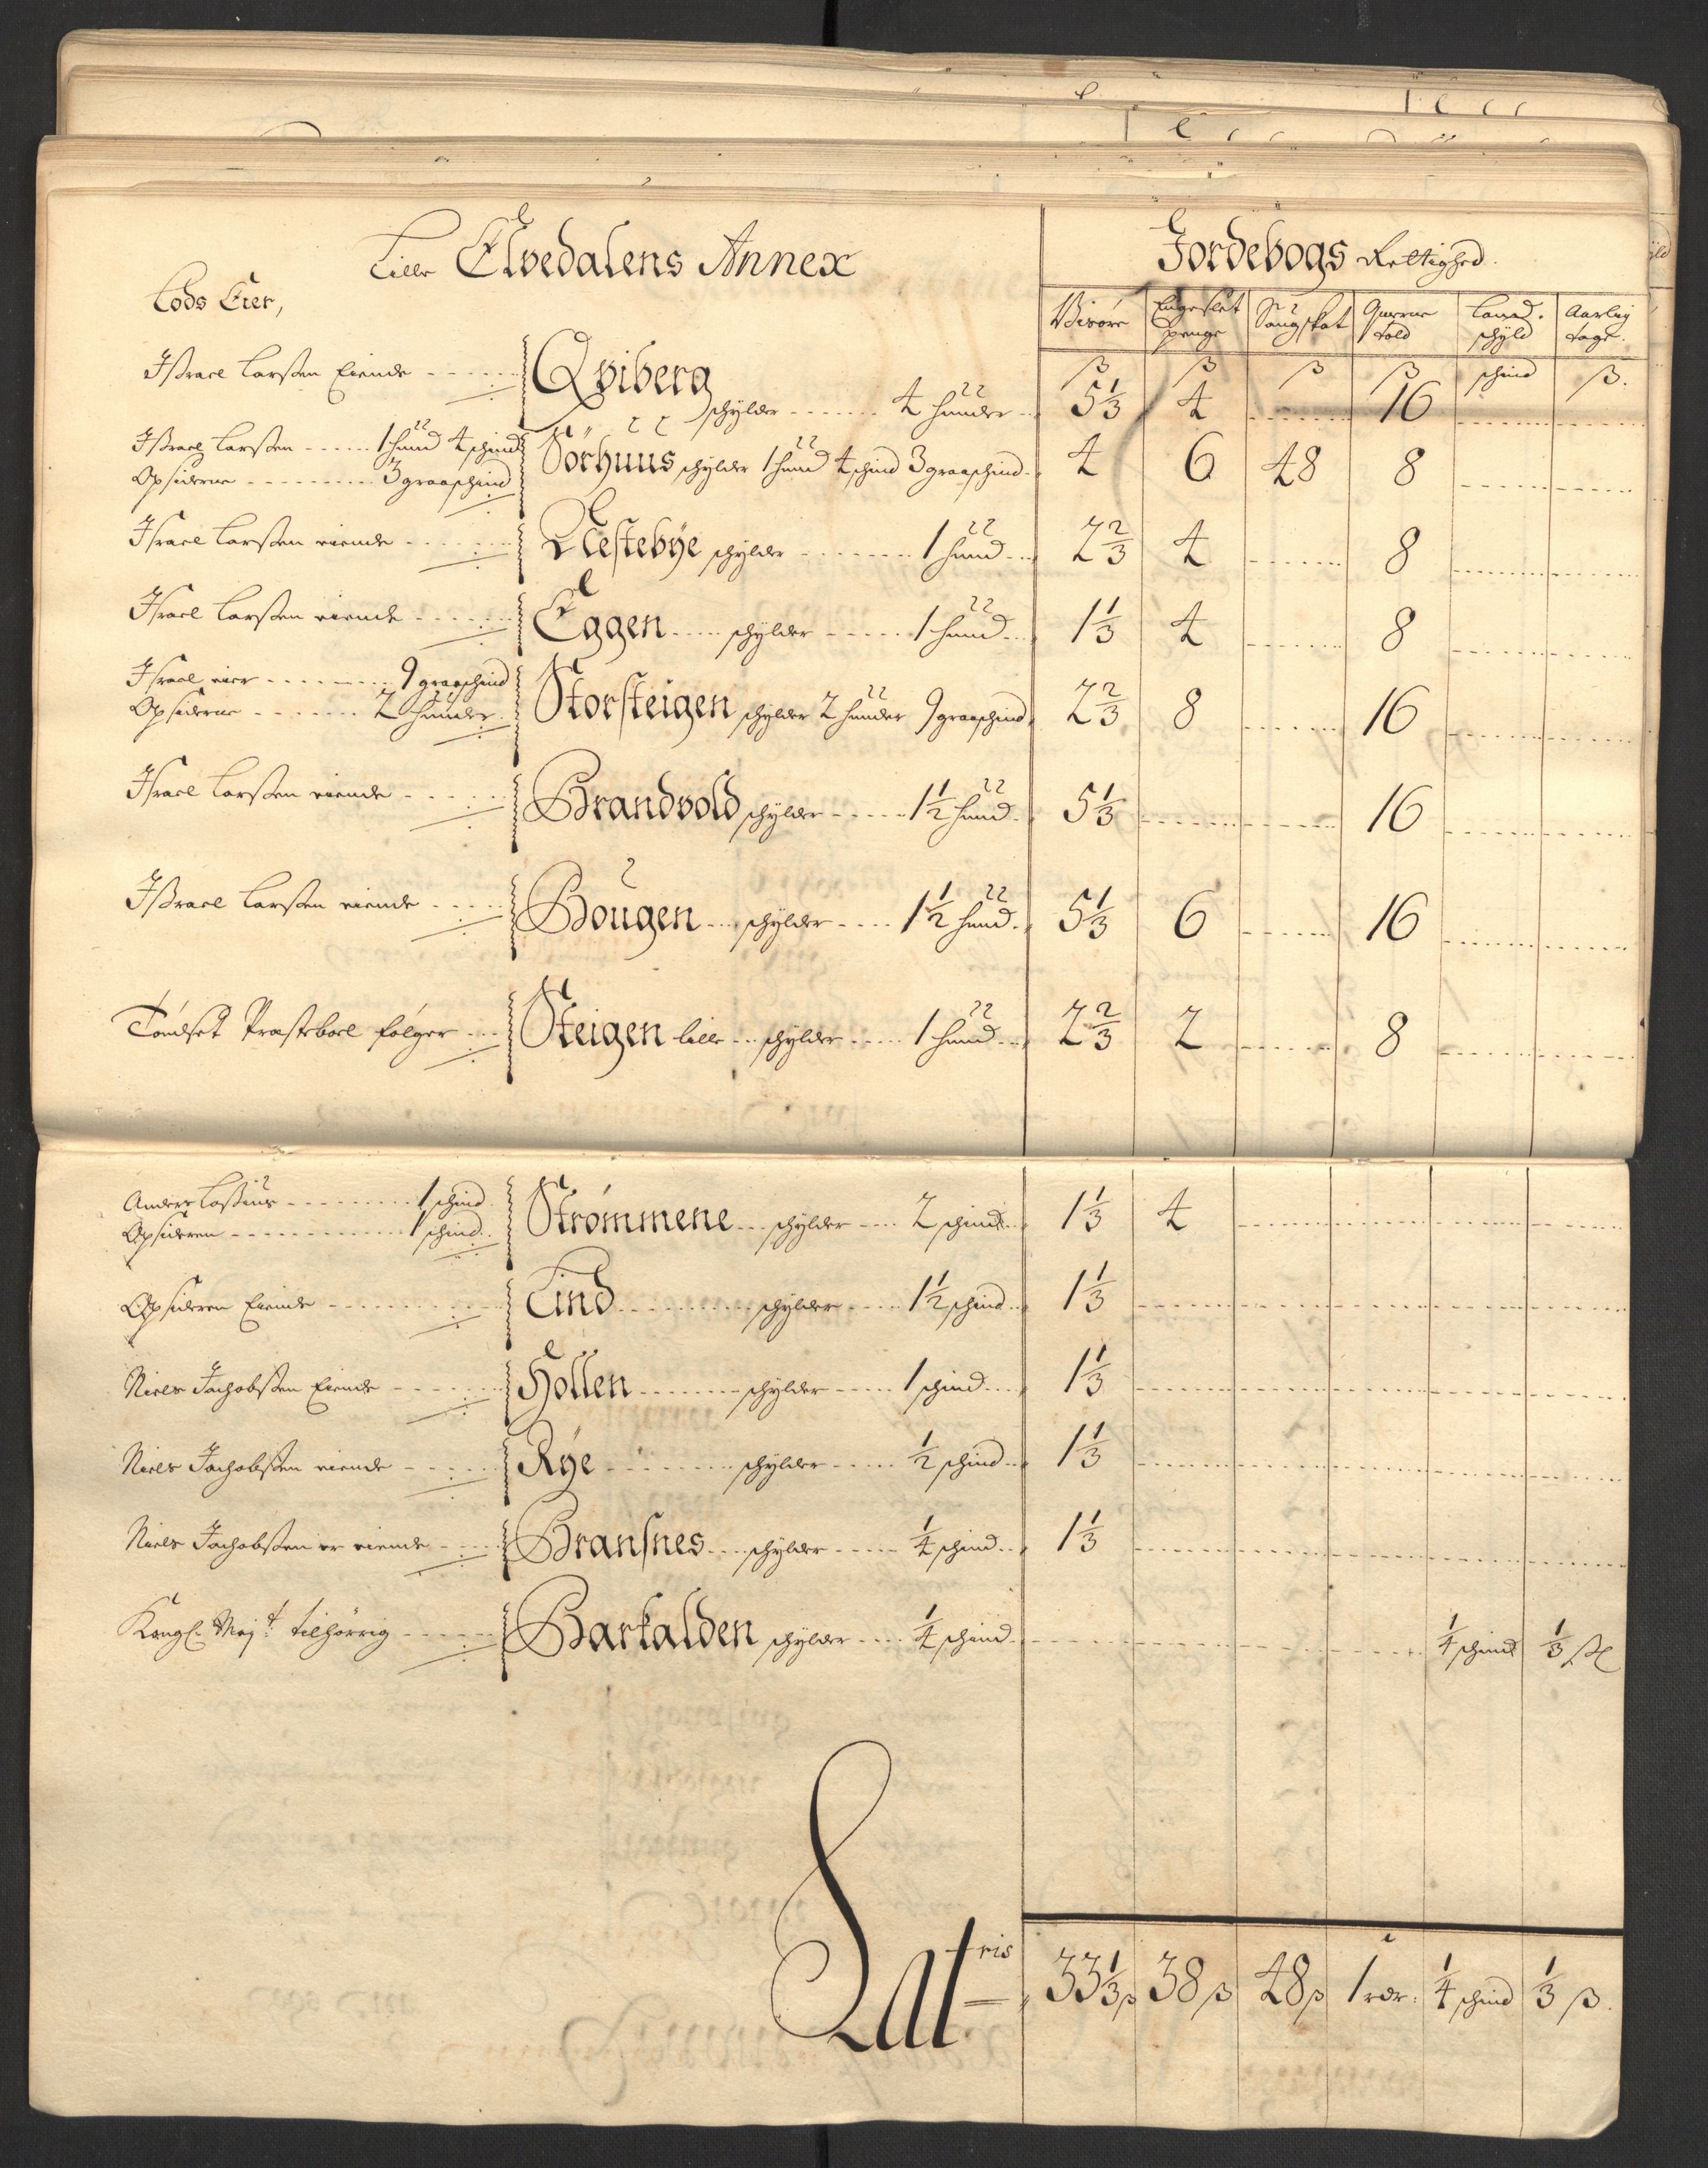 Lille Elvedalens Annex
Jordebogs Rettighed.
Lods Eier,
Visöre | Engeslet penge | Saugskat | Querne told | Land. schyld | Aarlig tage.
ß | ß | ß | ß | schind | ß.
Jßrael Larßen Eiende ----- Qviberg schylder ------- 4 huuder 5⅓ 4 ----- 16 ----- -----
Jßrael Larßen ----- 1 huud 4 schind
Opsiderne --------- 3 graaschind
Sörhuus schylder 1 huud 4 schind 3 graaschind. 4 6 48 8 ----- -----
Jsrael Larßen eiende ------ Plestebÿe schylder -------- 1 huud --- 2⅔ 4 ----- 8 ----- -----
Jsrael Larßen eiende ------ Eggen ----- schylder ----- 1 huud -- 1⅓ 4 ----- 8 ----- -----
Jsrael eier -------- 9 graaschind
Opsiderne ------- 2 huuder
Storsteigen schylder 2 huuder 9 graaschind 2⅔ 8 ----- 16 ----- -----
Jsrael Larßen eiende ----- Brandvold schylder ----- 1½ huud. 5⅓ ----- ----- 16 ----- -----
Jßrael Larßen eiende ----- Hougen --- schylder ---- 1½ huud. 5⅓ 6 ----- 16 ----- -----
Töndset Præsteboel følger --- Steigen lille -- schylder ---- 1 huud --- 2⅔ 2 ----- 8 ----- -----
Anders Loßius --------- 1 schind
Opsideren ------------ 1 schind.
Strömmene --- schylder ---- 2 schind -- 1⅓ 4 ----- ----- ----- -----
Opsideren Eiende ---------- Lind ---------- schylder ---- 1½ schind -- 1⅓ ----- ----- ----- ----- -----
Niels Jachobßen Eiende ------ Hollen -------- schylder ----- 1 schind ---- 1⅓ ----- ----- ----- ----- -----
Niels Jachobßen eiende ----- Rÿe --------- schylder ----- ½ schind -- 1⅓ ----- ----- ----- ----- -----
Niels Jachobßen er eiende ---- Bransnes ---- schylder ----- ¼ schind -- 1⅓ ----- ----- ----- ----- -----
Kongl. Majt: tilhörrig ----- Barkalden schylder ---- ¼ schind ----- ----- ----- ----- ¼ schind ⅓ ß
Latris 33⅓ ß 38 ß 48 ß 1 rdr. ¼ schind ⅓ ß.